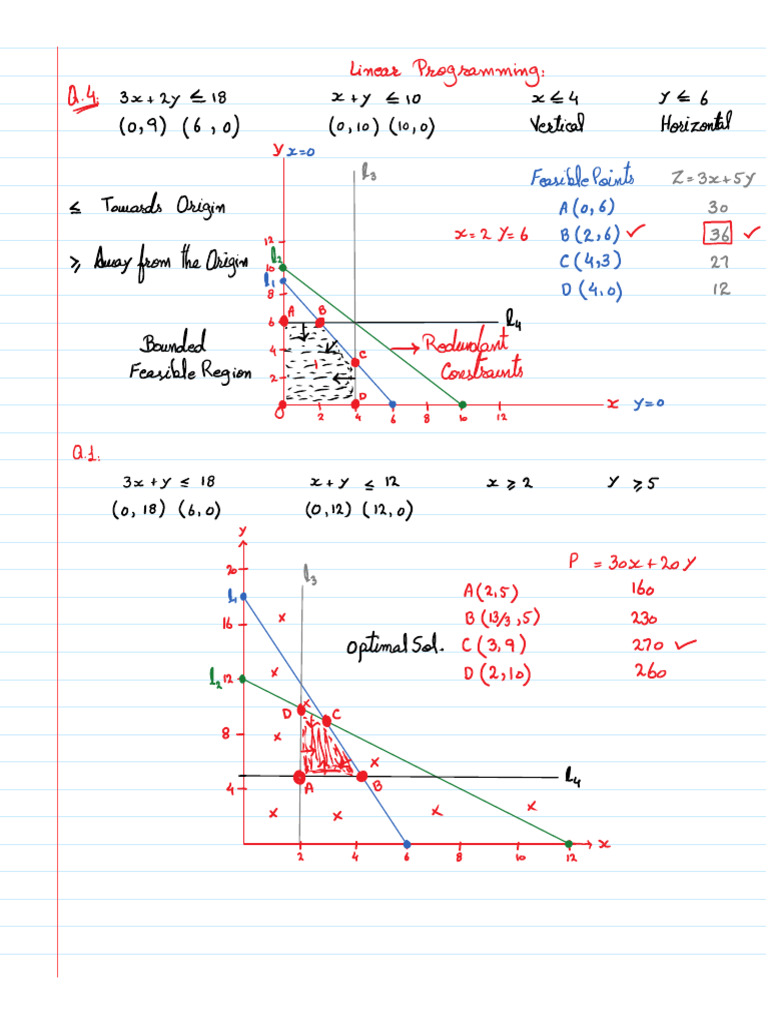 Linear Programming:
Q.4: 3x+2y ≤ 18 x+y ≤ 10 x ≤ 4 y ≤ 6
(0,9) (6,0) (0,10) (10,0) Vertical Horizontal
y x=0
l3
Feasible Points Z=3x+5y
≤ Towards Origin A(0,6) 30
x=2 y=6 B(2,6) ✓ 36 ✓
12
l2
≥ Away from the Origin C(4,3) 27
10
l1
8
D(4,0) 12
A B
6 l4
Bounded → Redundant
4 C
Feasible Region 1 Constraints
2
D
O 2 4 6 8 10 12 x y=0
Q.1:
3x+y ≤ 18 x+y ≤ 12 x ≥ 2 y ≥ 5
(0,18) (6,0) (0,12) (12,0)
y
P = 30x+20y
20 l3
A(2,5) 160
l1
16 x B(13/3,5) 230
Optimal Sol. C(3,9) 270 ✓
l2 12 x D(2,10) 260
x
D C
8 x
x
l4
4 A B
x x x x
2 4 6 8 10 12 x